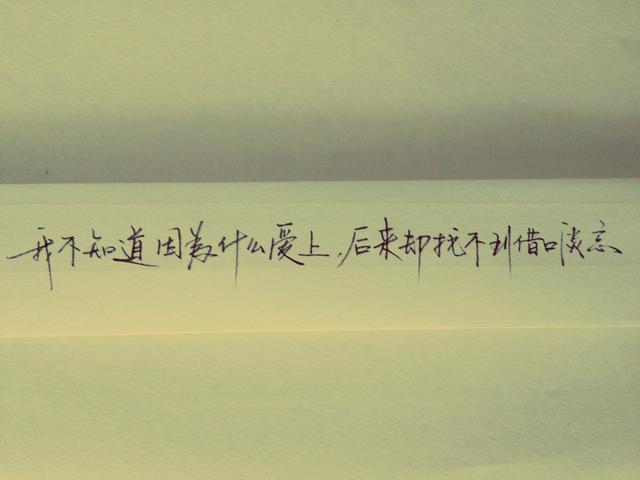 我不知道因为什么爱上,后来却找不到借口淡忘